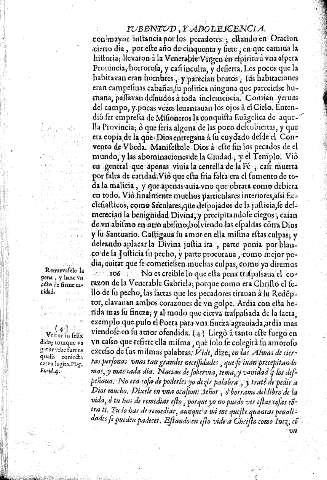 IUBENTUD, Y ADOLESCENCIA.
con mayor instancia por los pecadores; estando en Oracion
cierto dia, por este año de cinquenta y siete, en que camina la
historia; llevaron à la Venerable Virgen en espiritu à una aspera
Provincia, horrorosa, y casi inculta, y desierta. Los pocos que la
habitavan eran hombres, y parecian brutos; las habitaciones
eran campestres cabañas, su politica ninguna que pareciesse hu-
mana, passavan desnudos à toda inclemencia. Comian yervas
del campo, y pocas vezes levantavan los ojos à el Cielo. Enten-
diò ser empresa de Missioneros la conquista Evangelica de aque-
lla Provincia; ò que seria alguna de las poco descubiertas, y que
era copia de la que Dios entregava à su cuydado desde el Con-
vento de Vbeda. Manifestòle Dios à este fin los pecados de el
mundo, y las abominaciones de la Ciudad, y el Templo. Viò
en general que apenas vivia la centella de la Fè, casi muerta
por falta de caridad. Viò que esta fria falta era el fomento de to-
da la malicia, y que apenas avia uno que obrara como debiera
en todo. Viò finalmente muchos particulares interiores, assi Ec-
clesiasticos, como Seculares, que despojados de la justicia, se des-
merecian la benignidad Divina, y precipitandose ciegos, caian
de un abismo en otro abismo, bolviendo las espaldas à Dios
y su Santuario. Castigava su amor en ella misma estas culpas; y
deseando aplacar la Divina justicia ira, parte ponia por blan-
co de la Justicia su pecho, y parte procurava, como mejor po-
dia, quitar que se cometiessen muchas culpas, como ya diremos
106 No es creible lo que esta pena traspassava el co-
razon de la Venerable Gabriela; porque como era Christo el se-
llo de su pecho, las saetas que los pecadores tiravan à su Redẽp-
tor, clavavan ambos corazones de un golpe. Ardia ella heri-
da mas su fineza; y al modo que cierva traspassada de la saeta,
exemplo que puso el Poeta para una fineza agraviada, ardia mas
viendose en su amor ofendida. [4] Llegò à tanto este fuego en
un caso que refiere ella misma, què solo se colegirà su amoroso
excesso de sus mismas palabras: Vide, dize, en las Almas de cier-
tas personas unas tan grandes necessidades, que se iuan precipitando
mas, y mas cada dia. Nacian de soberuia, tema, y vanidad
No era cosa de poderles yo dezir palabra, y tratè de pedir à
Dios mucho. Dixele en una ocasion: Señor, ò borrame del libro de la
vida, ò tu has de remediar esto, porque yo no puedo ver estas cosas
tra ti. Tu lo has de remediar, aunque à mi me cueste quantas penali-
dades se pueden padecer. Estando en esto vide à Christo como Iuez, cõ
un
pena, y
[4]